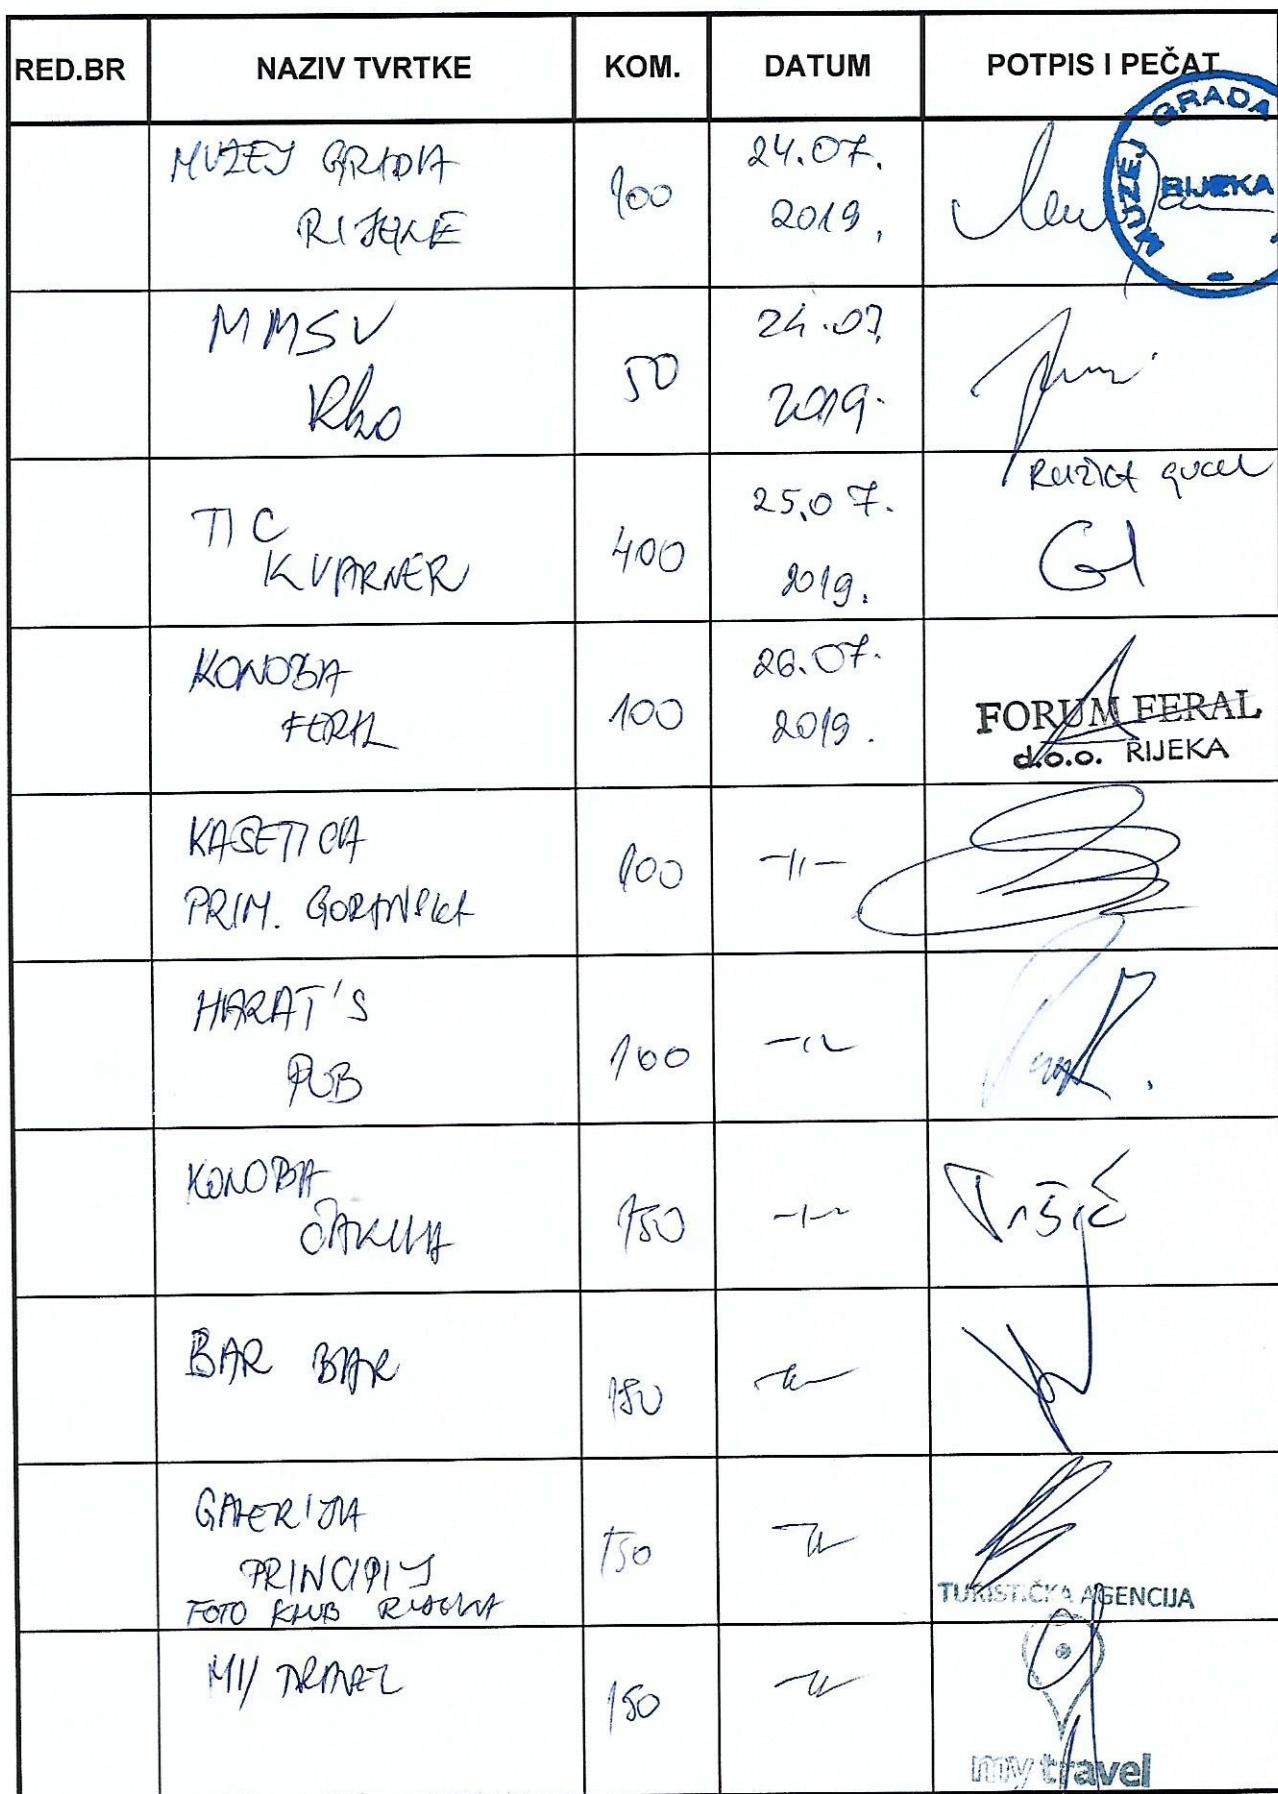 RED.BR NAZIV TVRTKE KOM. DATUM POTPIS I PEČAT
MUZEJ GRADA
RIJEKE
100
24.07.
2019.
MUZEJ GRADA
RIJEKA
MMSU
50
24.07.
2019.
TIC
KVARNER
400
25.07.
2019.
KONOBA
FERAL
100
26.07.
2019.
FORUM FERAL
d.o.o. RIJEKA
KASETICA
PRIM. GORANSKA
100
-||-
HARAT'S
PUB
100
-||-
KONOBA
ČAKULA
150
-||-
BAR BAR
150
-||-
GALERIJA
PRINCIPIJ
FOTO KLUB RIJEKA
150
-||-
TURISTIČKA AGENCIJA
MY TRAVEL
150
-||-
my travel